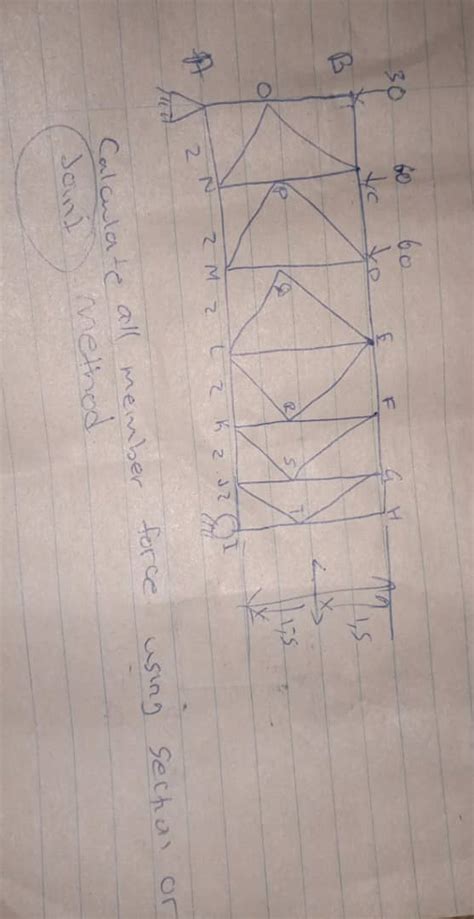 30 60 60
B C D E F G H
O P Q R S T
A N M L K J I
2 2 2 2 2 2
1,5
1,5
Calculate all member force using section or
Joint method